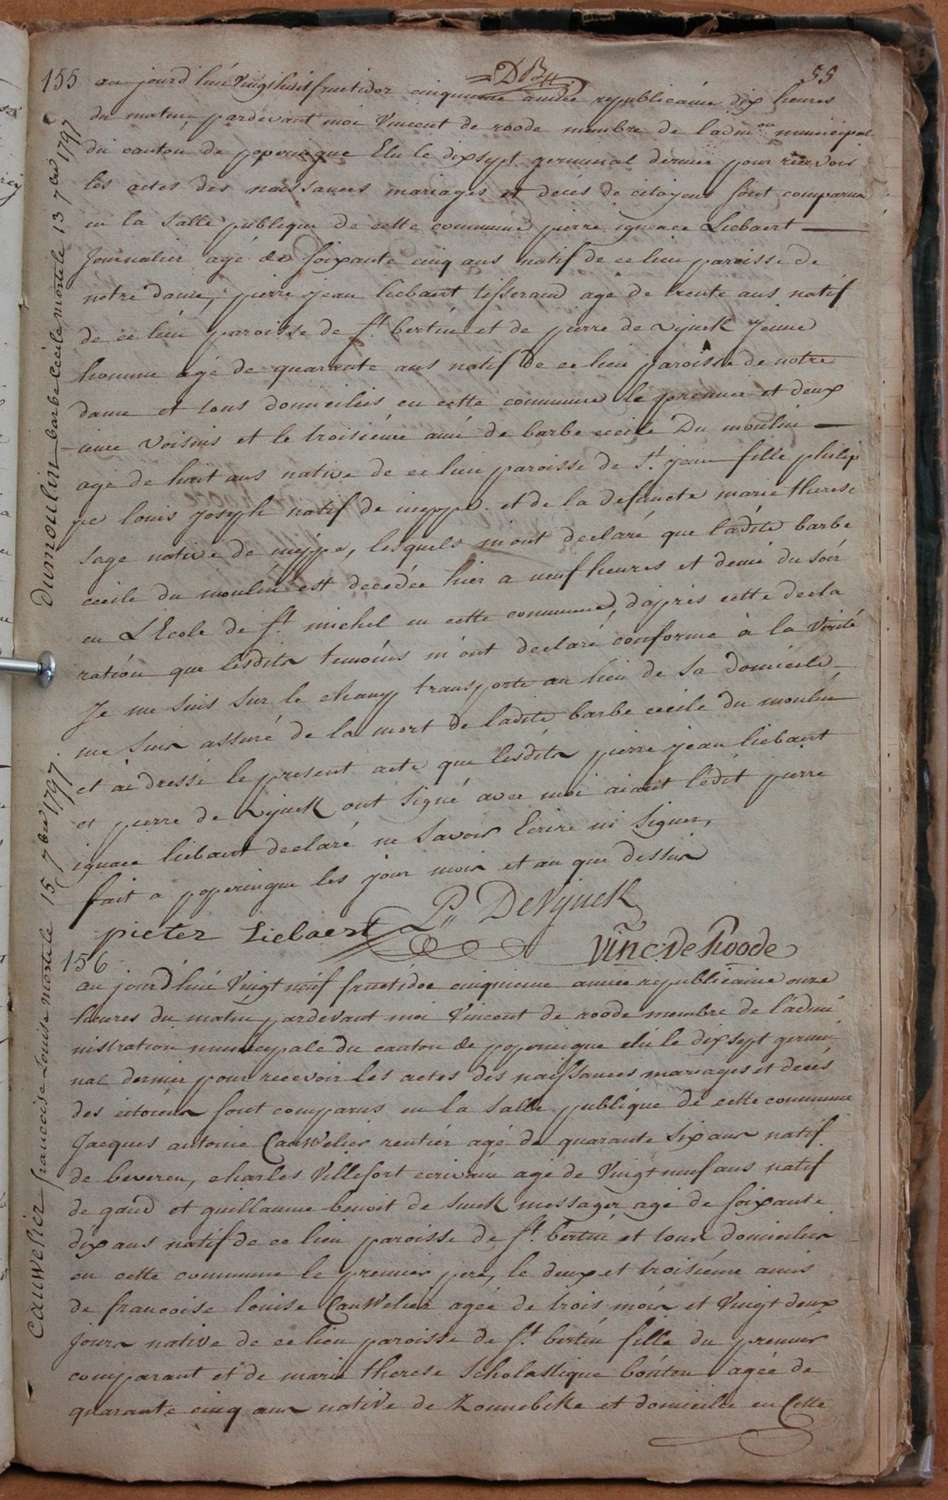 55
155 au jourd'hui vingt huit fructidor cinquieme année republicaine dix heures
du matin, pardevant moi Vincent de roode membre de l'admon municipal
du canton de poperingue Elu le dixsept germinal dernier pour recevoir
les actes des naissances mariages et decès de citoyens sont comparus
en la salle publique de cette commune pierre ignace Liebaert
Journalier agé de soixante cinq ans natif de ce lieu paroisse de
notre dame, pierre jean liebaert tisserand age de trente ans natif
de ce lieu paroisse de st bertin et de pierre de Vijnck jeune
homme agé de quarante ans natif de ce lieu paroisse de notre
dame et tous domiciliés en cette commune le premier et deux
ieme voisins et le troisieme ami de barbe cecile Du moulin
age de huit ans native de ce lieu paroisse de St jean fille philip
pe louis joseph natif de nieppe et de la defuncte marie therese
sage native de nieppe, lesquels m'ont declaré que ladite barbe
cecile du moulin est decedée hier a neuf heures et demi du soir
en L'Ecole de st michel en cette commune, d'après cette decla
ration que lesdits temoins m'ont declaré conforme à la verité
Je me suis sur le champ transporté au lieu de sa domicile
me suis assuré de la mort de ladite barbe cecile du moulin
et ai dressé le present acte que lesdits pierre jean liebaert
et pierre de Vijnck ont signé avec moi aiant ledit pierre
ignace liebaert declaré ne savoir Ecrire ni signer,
fait a poperingue les jour mois et an que dessus
P DeVijnck
pieter Liebaert
Vinc De Roode
156
au jourd'hui Vingt neuf fructidor cinquieme année republicaine onze
heures du matin pardevant moi Vincent de roode membre de l'admi
nistration municipale du canton de poperingue elu le dixsept germi
nal dernier pour recevoir les actes des naissances mariages et decès
des citoiens sont comparus en la salle publique de cette commune
Jacques antoine Cauwelier rentier agé de quarante six ans natif
de beveren, charles Villefort ecrivain age de Vingt neuf ans natif
de gand et guillaume benoit de Smek messager age de soixante
dix ans natif de ce lieu paroisse de st bertin et tous domicilies
en cette commune le premier pere, le deux et troisieme amis
de francoise louise Cauwelier agée de trois mois et Vingt deux
jours native de ce lieu paroisse de st bertin fille du premier
comparant et de marie therese Scholastique bouton agée de
quarante cinq ans native de Zonnebeke et domiciliée en cette
Dumoulin barbe Cecile morte le 13 7bre 1797
Cauwelier francoise Louise morte le 15 7bre 1797